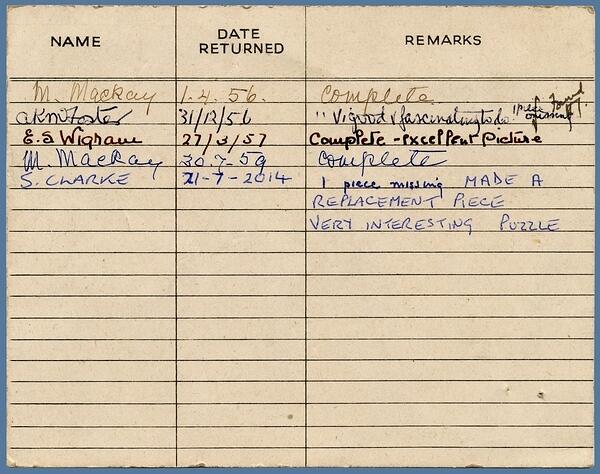 NAME DATE RETURNED REMARKS
M. Mackay 1.4.56. Complete
31/12/56 " V. good & fascinating to do" 1 piece missing Found
E.S Wigram 27/3/57 Complete - excellent Picture
M. Mackay 30.7-59 Complete
S. CLARKE 21-7-2014 1 piece missing MADE A
REPLACEMENT PIECE
VERY INTERESTING PUZZLE